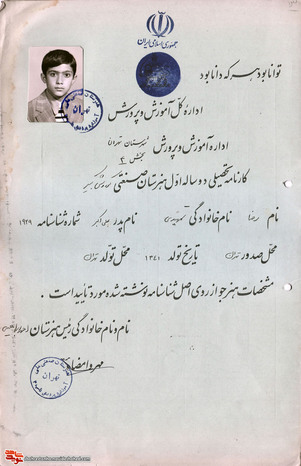 جمهوری اسلامی ایران
توانا بود هر که دانا بود
اداره کل آموزش و پرورش
اداره آموزش و پرورش شهرستان تهران
بخش ۳
کارنامه تحصیلی دو ساله اول هنرستان صنعتی
نام رضا نام خانوادگی نام پدر علی اکبر شماره شناسنامه ۱۹۲۹
محل صدور تهران تاریخ تولد ۱۳۴۱ محل تولد تهران
مشخصات هنرجو از روی اصل شناسنامه نوشته شده مورد تایید است .
نام و نام خانوادگی رئیس هنرستان
مهر و امضاء
تهران
تهران